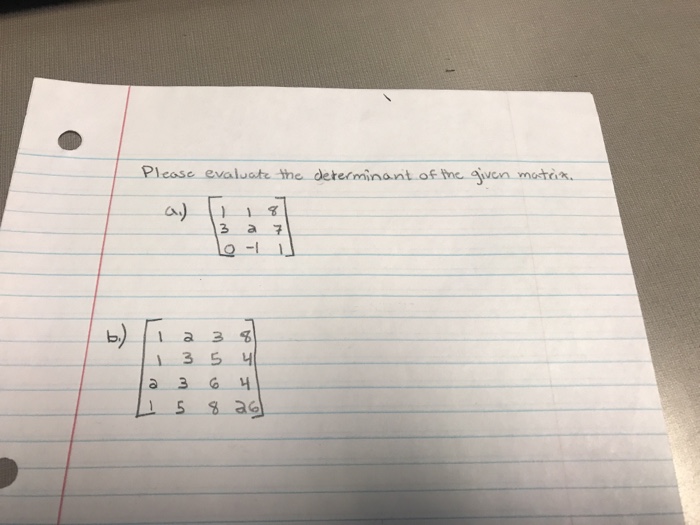 Please evaluate the determinant of the given matrix.
a.) [1 1 8
3 2 7
0 -1 1]
b.) [1 2 3 8
1 3 5 4
2 3 6 4
1 5 8 26]